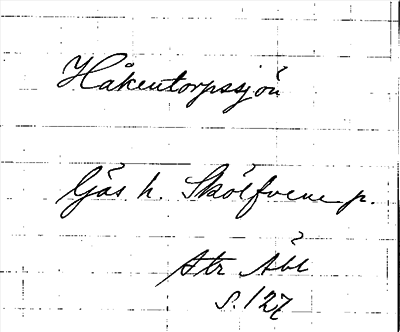 Håkentorpssjön
Gäs. h. Skölfvene p.
Str Åbl
s. 127